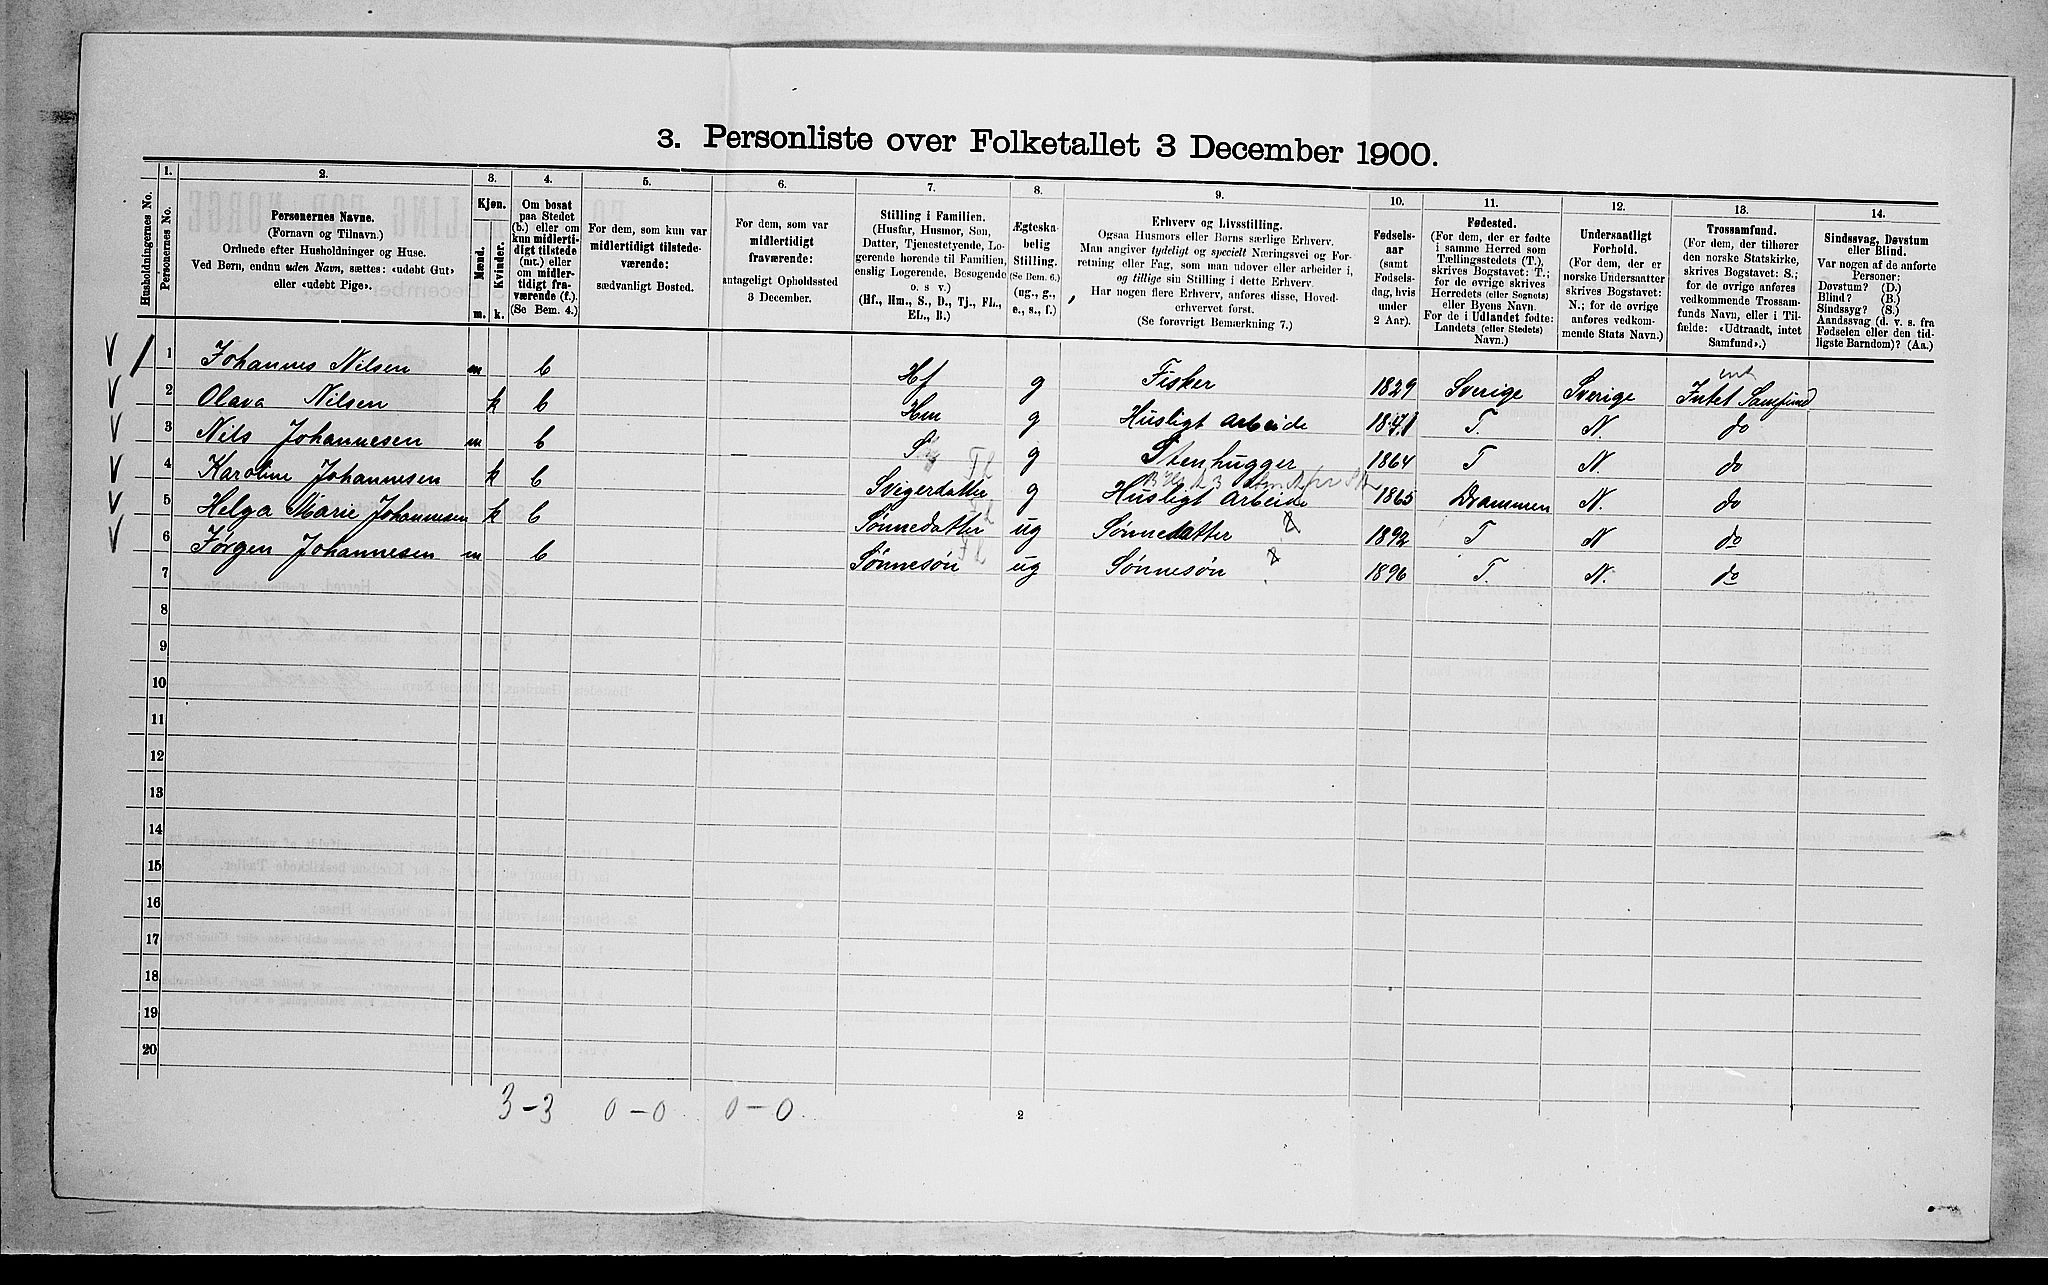 3. Personliste over Folketallet 3 December 1900.
Husholdningernes No.
1.
Personernes No.
2.
Personernes Navne.
(Fornavn og Tilnavn.)
Ordnede efter Husholdninger og Huse.
Ved Børn, endnu uden Navn, sættes: «udøbt Gut»
eller «udøbt Pige».
3.
Kjøn.
Mænd.
Kvinder.
m. k.
4.
Om bosat
paa Stedet
(b.) eller om
kun midlerti-
digt tilstede
(mt.) eller
om midler-
tidigt fra-
værende (f.).
(Se Bem. 4.)
5.
For dem, som kun var
midlertidigt tilstede-
værende:
sædvanligt Bosted.
6.
For dem, som var
midlertidigt
fraværende:
antageligt Opholdssted
3 December.
7.
Stilling i Familien.
(Husfar, Husmor, Søn,
Datter, Tjenestetyende, Lo-
gerende hørende til Familien,
enslig Logerende, Besøgende
o. s v.)
(Hf., Hm., S., D., Tj., FL.,
EL., B.)
8.
Ægteska-
belig
Stilling.
(Se Bem. 6.)
(ug., g.,
e., s., f.)
9.
Erhverv og Livsstilling.
Ogsaa Husmors eller Børns særlige Erhverv.
Man angiver tydeligt og specielt Næringsvei og For-
retning eller Fag, som man udøver eller arbeider i,
og tillige sin Stilling i dette Erhverv.
Har nogen flere Erhverv, anføres disse, Hoved-
erhvervet først.
(Se forøvrigt Bemærkning 7.)
10.
Fødsels-
aar
(samt
Fødsels-
dag, hvis
under
2 Aar).
11.
Fødested.
(For dem, der er fødte
i samme Herred som
Tællingsstedets (T.),
skrives Bogstavet: T.;
for de øvrige skrives
Herredets (eller Sognets)
eller Byens Navn.
For de i Udlandet fødte:
Landets (eller Stedets)
Navn.)
12.
Undersaatligt
Forhold.
(For dem, der er
norske Undersaatter
skrives Bogstavet:
N.; for de øvrige
anføres vedkom-
mende Stats Navn.)
13.
Trossamfund.
(For dem, der tilhører
den norske Statskirke,
skrives Bogstavet: S.;
for de øvrige anføres
vedkommende Trossam-
funds Navn, eller i Til-
fælde: «Udtraadt, intet
Samfund».)
14.
Sindssvag, Døvstum
eller Blind.
Var nogen af de anførte
Personer:
Døvstum? (D.)
Blind? (B.)
Sindssyg? (S.)
Aandssvag (d. v. s. fra
Fødselen eller den tid-
ligste Barndom)? (Aa.)
1 Johannes Nilsen m b Hf g Fisker 1829 Sverige Sverige Intet Samfund
2 Olava Nilsen k b Hm g Husligt Arbeide 1841 T. N. do
3 Nils Johannesen m b S g Stenhugger 1864 T N. do
4 Karoline Johannesen k b Svigerdatter Fl g Husligt Arbeide 1865 Drammen N. do
5 Helga Marie Johannesen k b Sønnedatter Fl ug Sønnedatter 1892 T N do
6 Jørgen Johannesen m b Sønnesøn Fl ug Sønnesøn 1896 T. N. do
7
8
9
10
11
12
13
14
15
16
17
18
19
20
3-3 0-0 0-0.
2